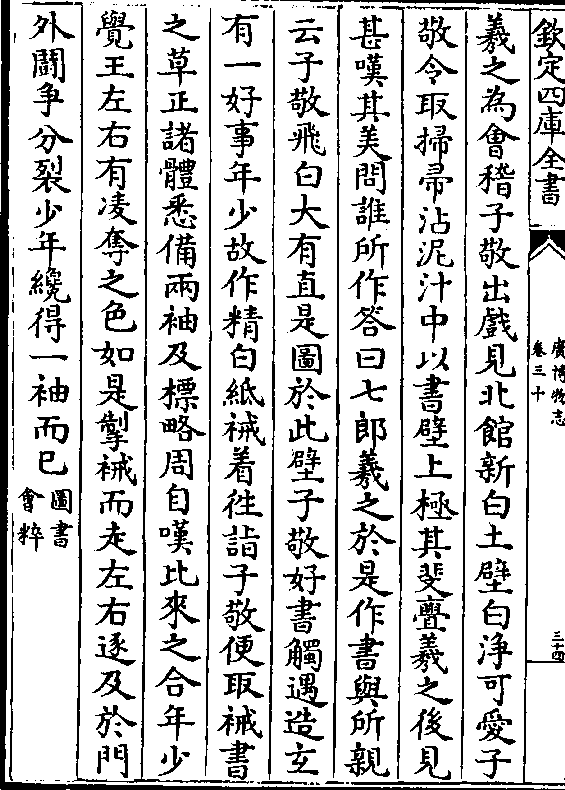 欽定四庫全書
廣博物志
卷三十
三十四
羲之為會稽子敬出戲見北館新白土壁白淨可愛子
敬令取掃帚沾泥汁中以書壁上極其斐亹羲之後見
甚嘆其美問誰所作答曰七郎羲之於是作書與所親
云子敬飛白大有直是圖於此壁子敬好書觸遇造玄
有一好事年少故作精白紙祴着往詣子敬便取祴書
之草正諸體悉備兩袖及標略周自嘆比來之合年少
覺王左右有凌奪之色如是掣祴而走左右逐及於門
外鬬争分裂少年纔得一袖而已
圖書
會粹